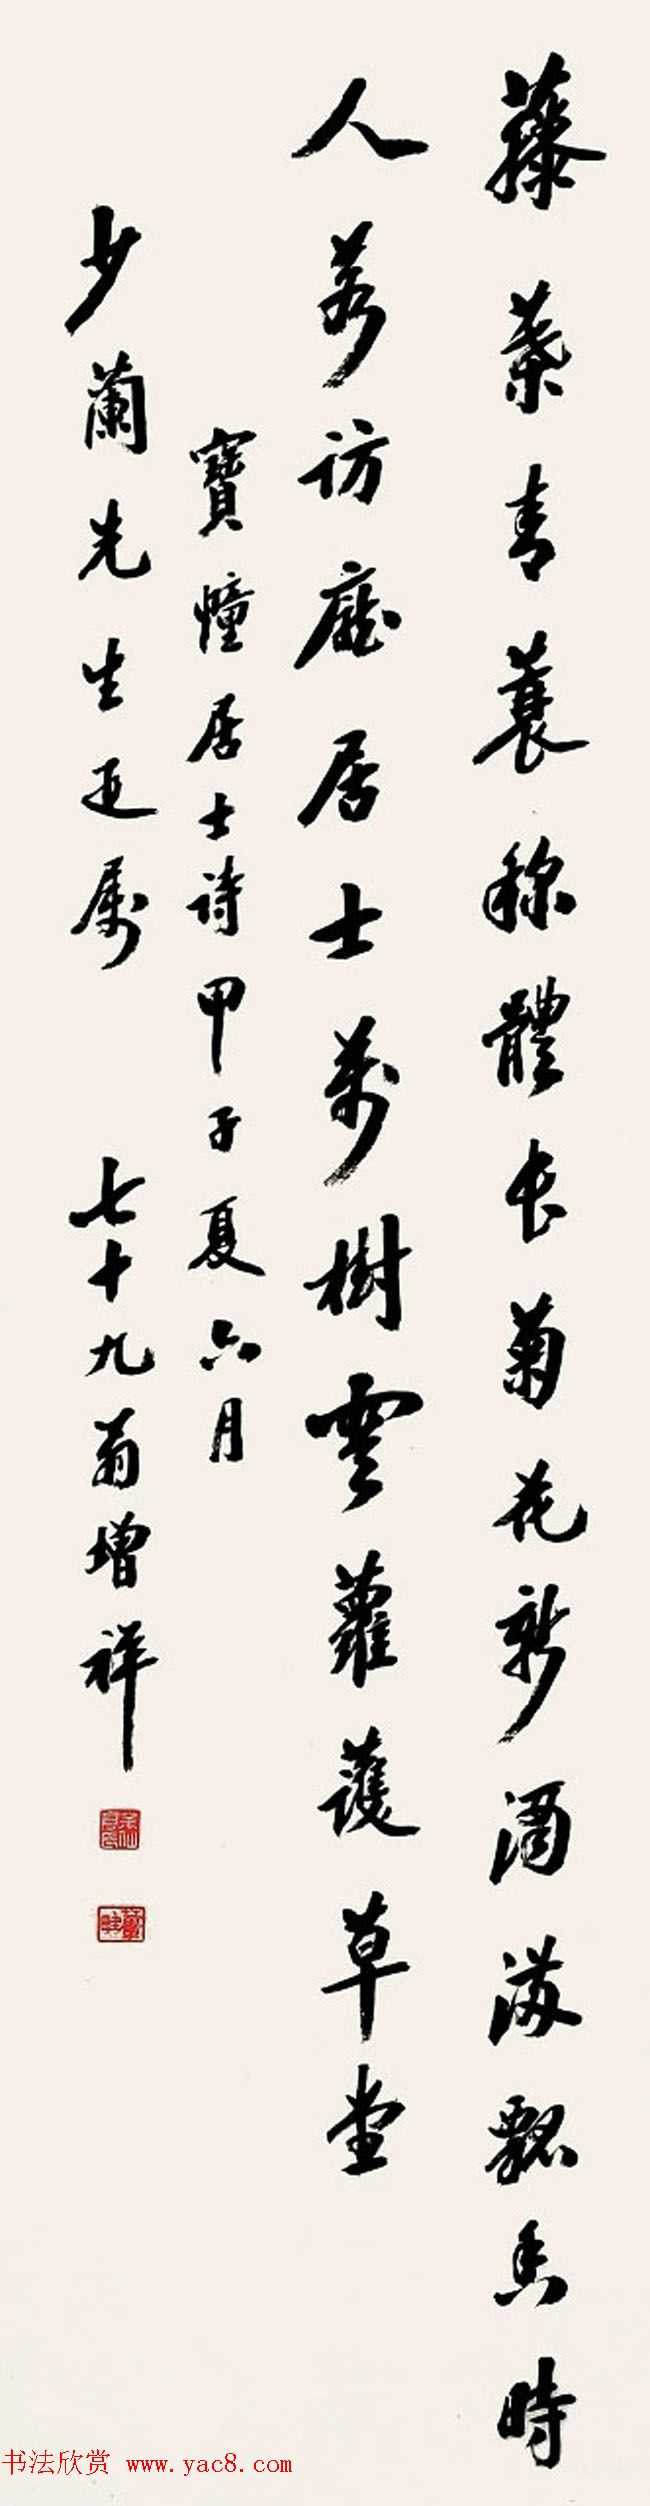 藤葉青蓑稱體長菊花新酒滿瓢香時
人若訪龐居士萬樹雲蘿護草堂
寶幢居士詩甲子夏六月
少蘭先生正屬 七十九翁增祥
书法欣赏 www.yac8.com